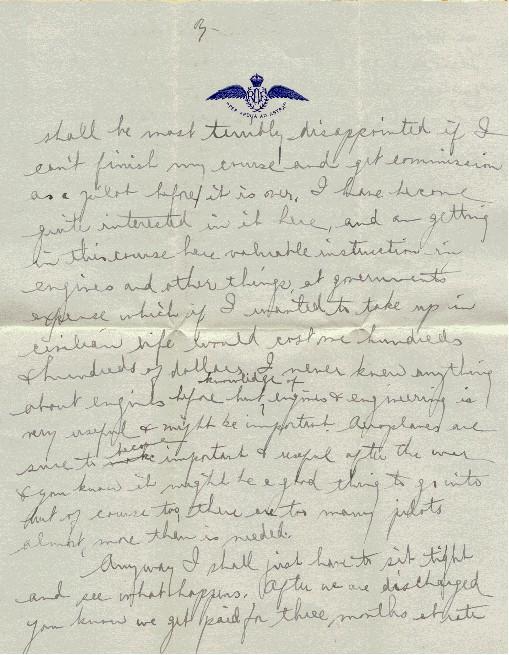 3-
RFC
PER ARDUA AD ASTRA
shall be most terribly disappointed if I
can't finish my course and get commission
as a pilot before it is over. I have become
quite interested in it here, and am getting
in this course here valuable instruction in
engines and other things, at governments
expense which if I wanted to take up in
civilian life would cost me hundreds
& hundreds of dollars. I never knew anything
knowledge of
about engines before but engines & engineering is
very useful & might be important. Aeroplanes are
become
sure to make important & useful after the war
& you know it might be a good thing to go into
but of course too there are too many pilots
almost, more than is needed.
Anyway I shall just have to sit tight
and see what happens. After we are discharged
you know we get paid for three months at rate